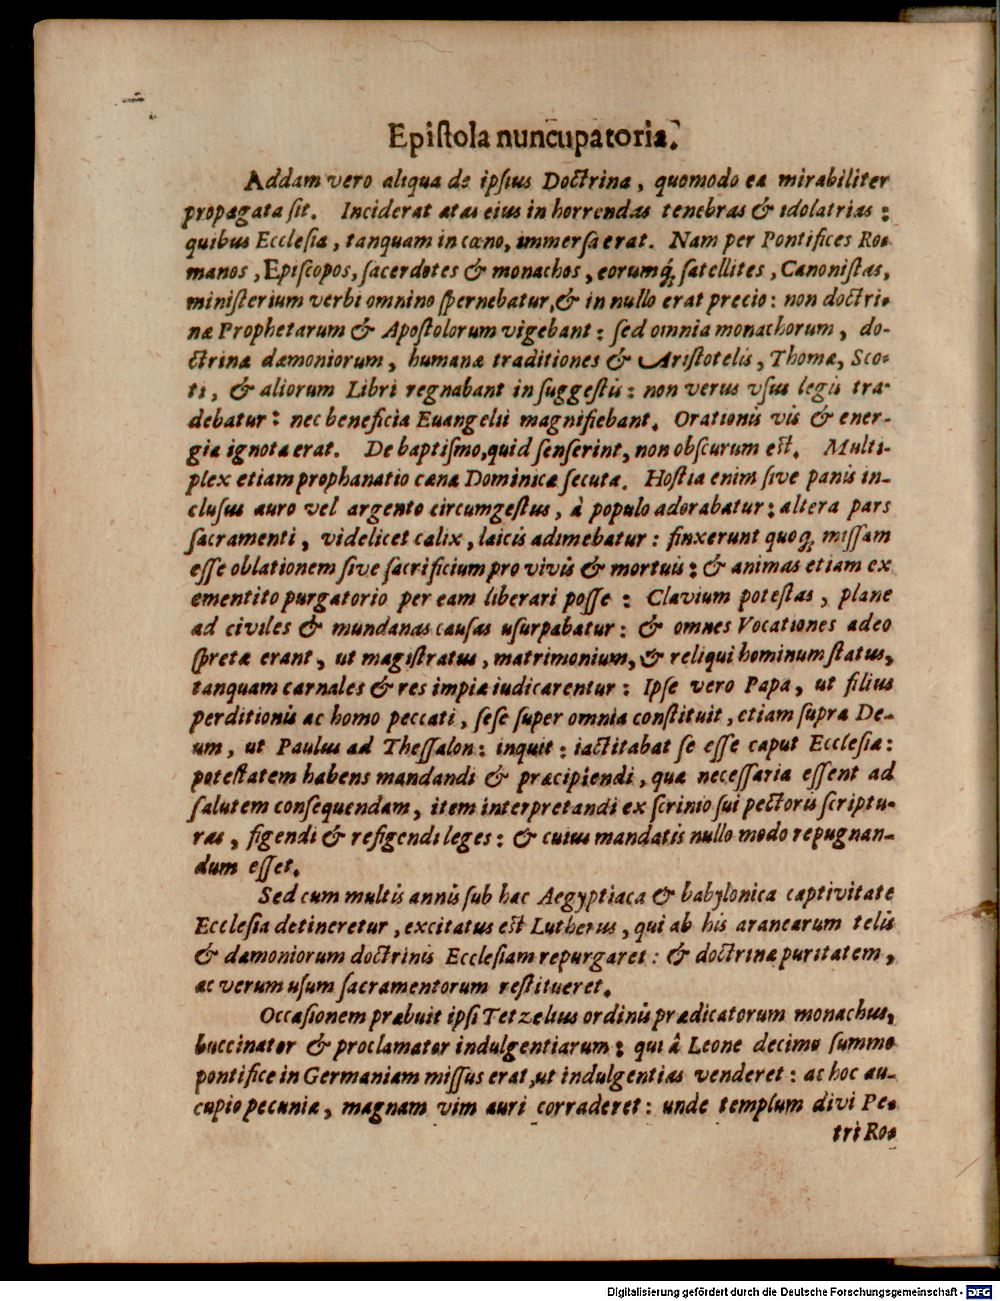 Epiſtola nuncupatoria.
Addam vero aliqua de ipſius Doctrina, quomodo ea mirabiliter
propagata ſit. Inciderat ætas eius in horrendas tenebras & idolatrias:
quibus Eccleſia, tanquam in cœno, immerſa erat. Nam per Pontifices Ro-
manos, Epiſcopos, ſacerdotes & monachos, eorumq́; ſatellites, Canoniſtas,
miniſterium verbi omnino ſpernebatur, & in nullo erat precio: non doctri-
næ Prophetarum & Apoſtolorum vigebant: ſed omnia monachorum, do-
ctrinæ dæmoniorum, humanæ traditiones & Ariſtotelis, Thomæ, Sco-
ti, & aliorum Libri regnabant in ſuggeſtis: non verus vſus legis tra-
debatur: nec beneficia Euangelii magnifiebant. Orationis vis & ener-
gia ignota erat. De baptiſmo, quid ſenſerint, non obſcurum eſt. Multi-
plex etiam prophanatio cænæ Dominicæ ſecuta. Hoſtia enim ſive panis in-
cluſus auro vel argento circumgeſtus, à populo adorabatur: altera pars
ſacramenti, videlicet calix, laicis adimebatur: finxerunt quoq; miſſam
eſſe oblationem ſive ſacrificium pro vivis & mortuis: & animas etiam ex
ementito purgatorio per eam liberari poſſe: Clavium poteſtas, plane
ad civiles & mundanas cauſas uſurpabatur: & omnes Vocationes adeo
ſpretæ erant, ut magiſtratus, matrimonium, & reliqui hominum ſtatus,
tanquam carnales & res impiæ iudicarentur: Ipſe vero Papa, ut filius
perditionis ac homo peccati, ſeſe ſuper omnia conſtituit, etiam ſupra De-
um, ut Paulus ad Theſſalon: inquit: iactitabat ſe eſſe caput Eccleſiæ:
poteſtatem habens mandandi & præcipiendi, quæ neceſſaria eſſent ad
ſalutem conſequendam, item interpretandi ex ſcrinio ſui pectoris ſcriptu-
ras, figendi & refigendi leges: & cuius mandatis nullo modo repugnan-
dum eſſet.
Sed cum multis annis ſub hac Aegyptiaca & babylonica captivitate
Eccleſia detineretur, excitatus eſt Lutherus, qui ab his aranearum telis
& dæmoniorum doctrinis Eccleſiam repurgaret: & doctrinæ puritatem,
ac verum uſum ſacramentorum reſtitueret.
Occaſionem præbuit ipſi Tetzelius ordinis prædicatorum monachus,
buccinator & proclamator indulgentiarum: qui à Leone decimo ſummo
pontifice in Germaniam miſſus erat, ut indulgentias venderet: ac hoc au-
cupio pecuniæ, magnam vim auri corraderet: unde templum divi Pe-
tri Ro-
Digitalisierung gefördert durch die Deutsche Forschungsgemeinschaft - DFG